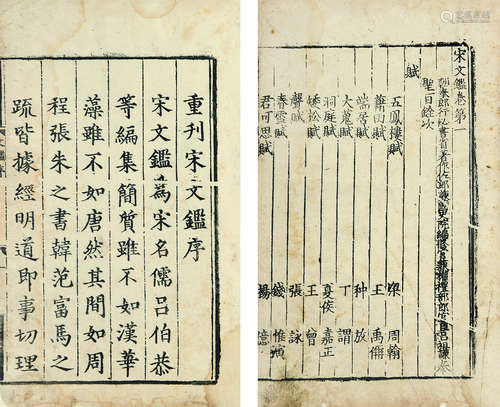 重刊宋文鑑序
宋文鑑為宋名儒呂伯恭
等編集簡質雖不如漢華
藻雖不如唐然其間如周
程張朱之書韓范富馬之
疏皆據經明道即事切理
宋文鑑卷第一
聖旨銓次
賦
五鳳樓賦 梁周翰
藉田賦 王禹偁
端居賦 种放
大蒐賦 丁謂
洞庭賦 夏侯嘉正
矮松賦 王曾
春雪賦 錢惟演
君可思賦 楊億